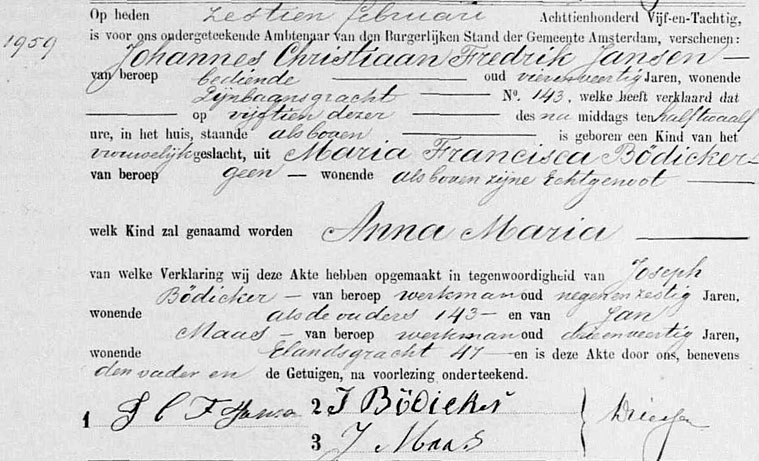 1959
Op heden zestien februari Achttienhonderd Vijf-en-Tachtig,
is voor ons ondergeteekende Ambtenaar van den Burgerlijken Stand der Gemeente Amsterdam, verschenen:
Johannes Christiaan Fredrik Jansen
van beroep bediende oud vierenveertig Jaren, wonende
Lijnbaansgracht No. 143, welke heeft verklaard dat
op vijftien dezer des na middags ten half twaalf
ure, in het huis, staande als boven is geboren een Kind van het
vrouwelijk geslacht, uit Maria Francisca Bödicker
van beroep geen wonende als boven zijne Echtgenoot
welk Kind zal genaamd worden Anna Maria
van welke Verklaring wij deze Akte hebben opgemaakt in tegenwoordigheid van Joseph
Bödicker van beroep werkman oud negenenzestig Jaren,
wonende als de ouders 143 en van Jan
Maas van beroep werkman oud drieenveertig Jaren,
wonende Elandsgracht 47 en is deze Akte door ons, benevens
den vader en de Getuigen, na voorlezing onderteekend.
1 J C F Jansen 2 J Bödicker
3 J Maas